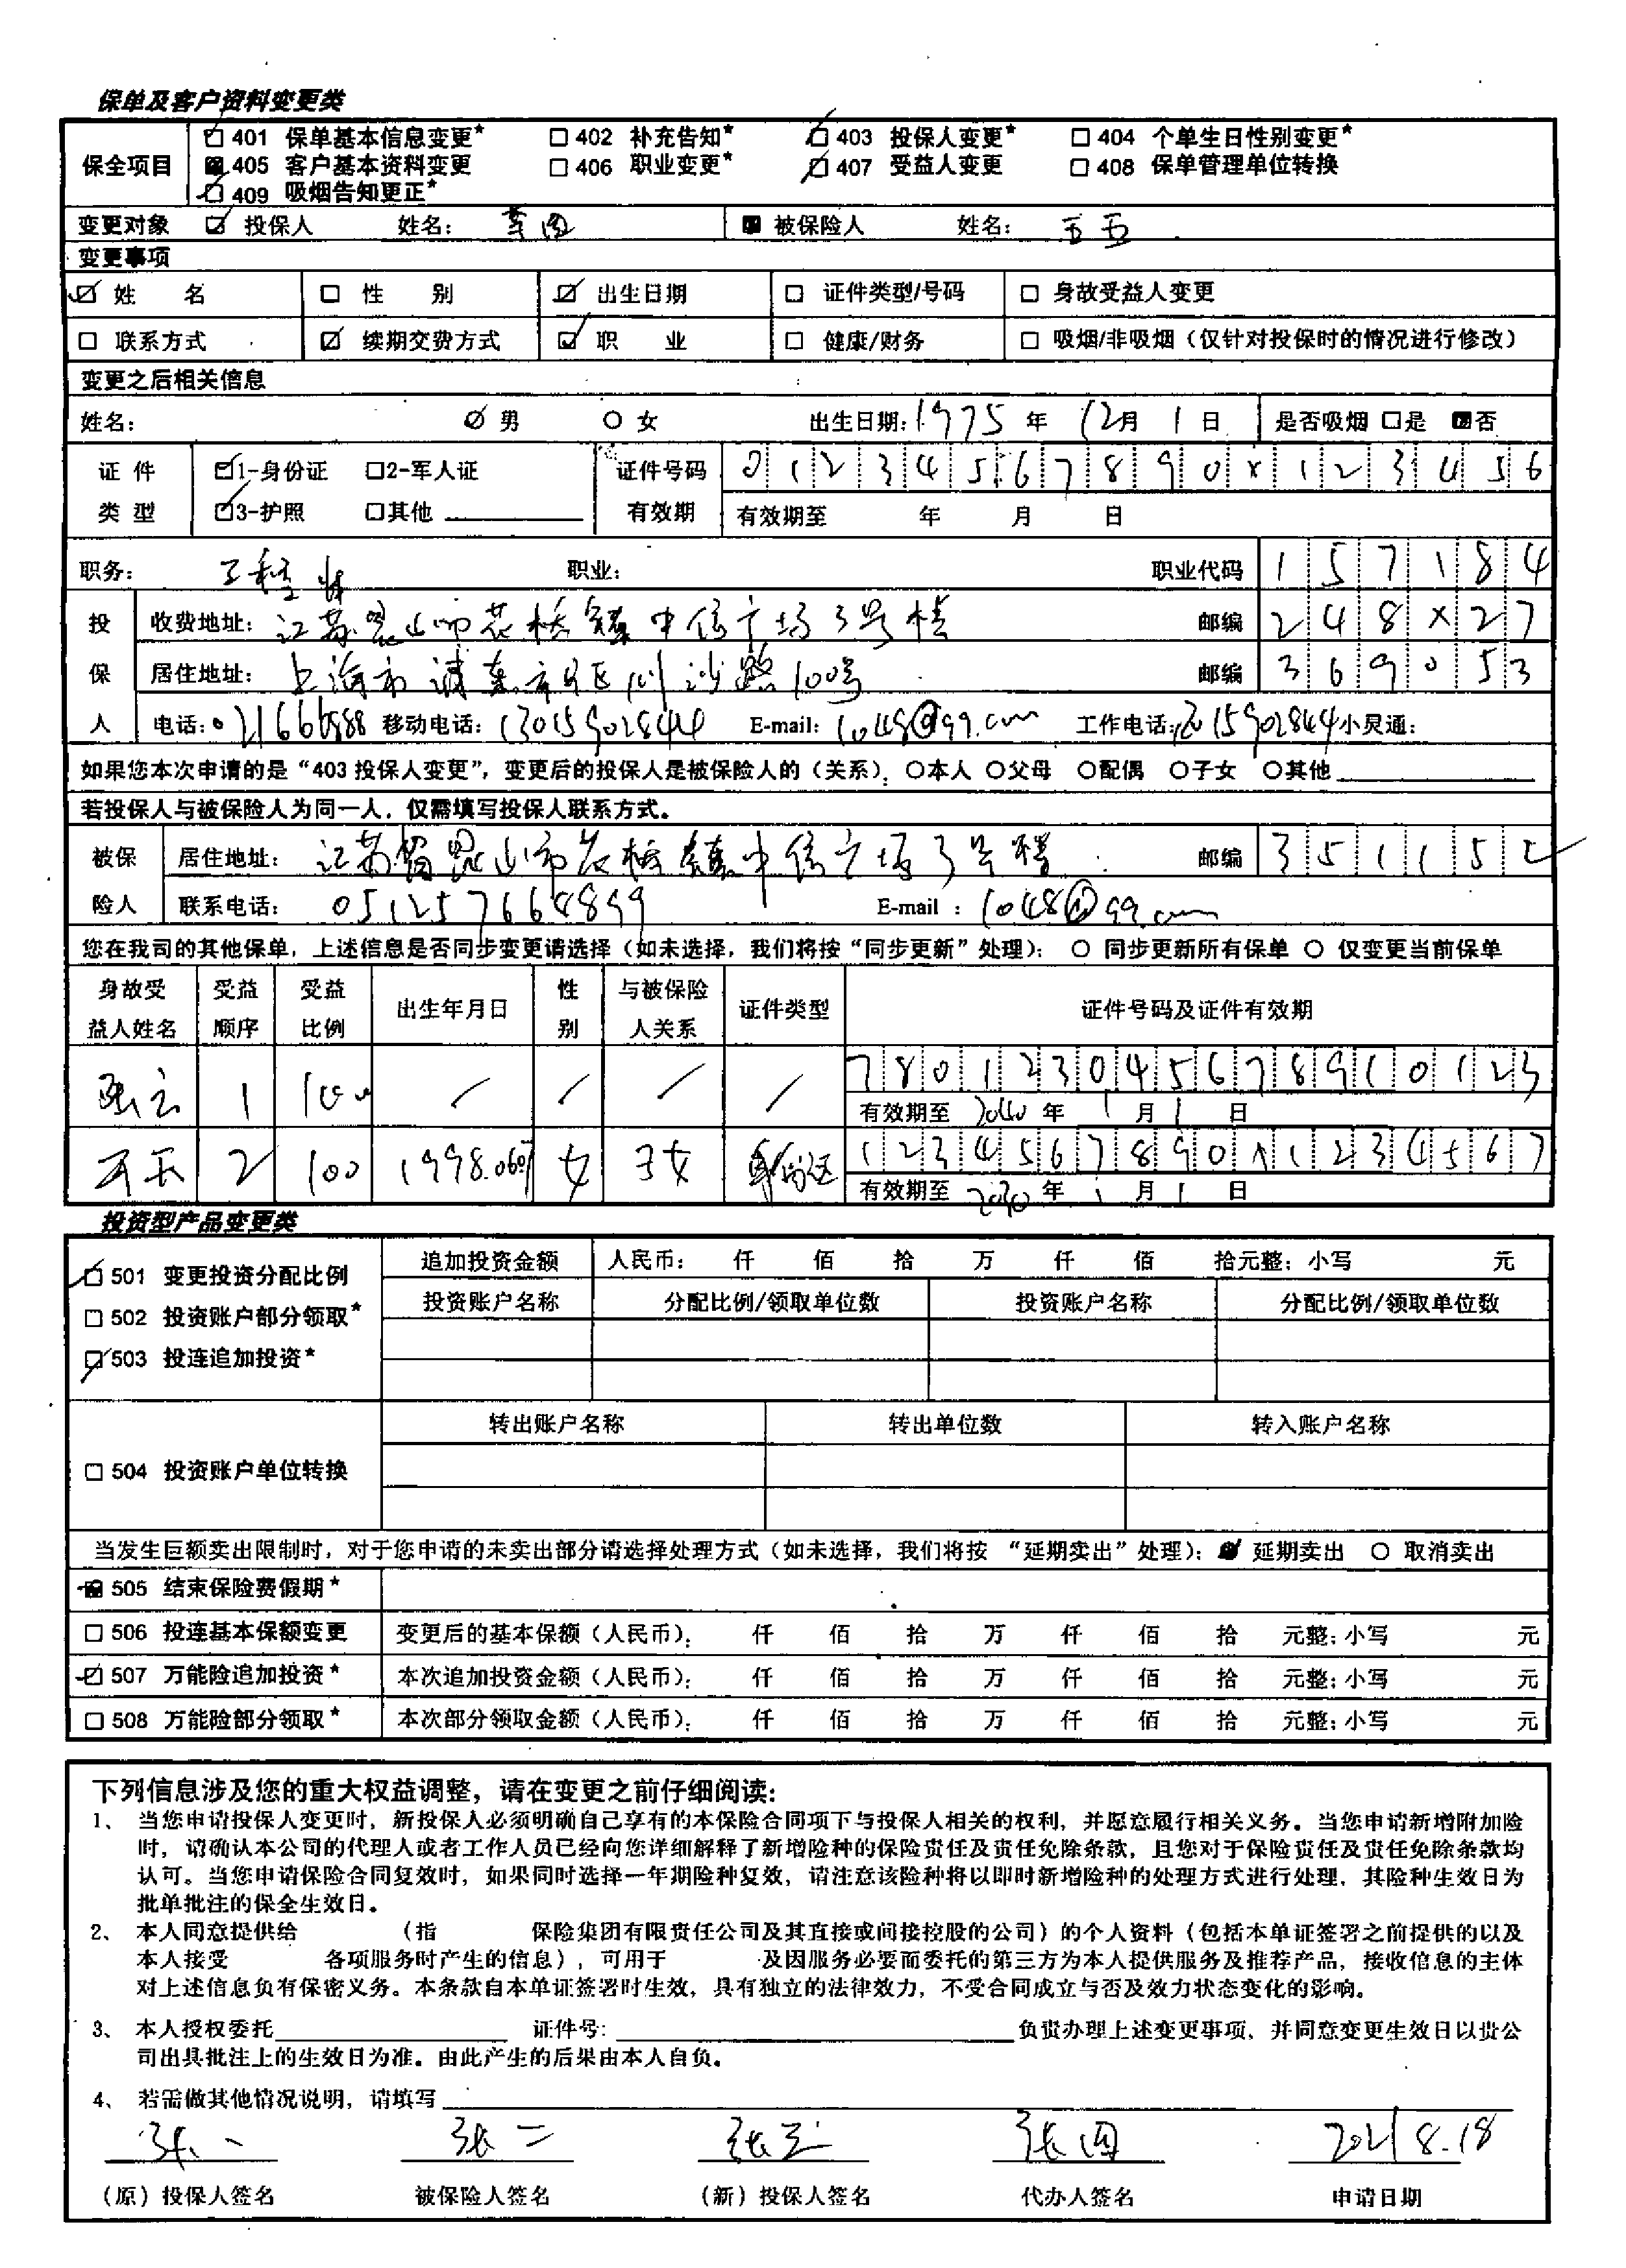 保单及客户资料变更类
保全项目 ☑ 401 保单基本信息变更* ☐ 402 补充告知* ☑ 403 投保人变更* ☐ 404 个单生日性别变更*
■ 405 客户基本资料变更 ☐ 406 职业变更* ☑ 407 受益人变更 ☐ 408 保单管理单位转换
☑ 409 吸烟告知更正*
变更对象 ☑ 投保人 姓名: ■ 被保险人 姓名: 五五
变更事项
☑ 姓 名 ☐ 性 别 ☑ 出生日期 ☐ 证件类型/号码 ☐ 身故受益人变更
☐ 联系方式 ☑ 续期交费方式 ☑ 职 业 ☐ 健康/财务 ☐ 吸烟/非吸烟（仅针对投保时的情况进行修改）
变更之后相关信息
姓名: ☑ 男 ○ 女 出生日期: 1975 年 12月 1 日 是否吸烟 ☐是 ■否
证 件 ☑1-身份证 ☐2-军人证 证件号码 01234567890x123456
类 型 ☑3-护照 ☐其他 有效期 有效期至 年 月 日
职务: 工程师 职业: 职业代码 157184
投 收费地址: 江苏昆山市花桥镇中信广场3号楼 邮编 248x27
保 居住地址: 上海市浦东新区川沙路100号 邮编 369053
人 电话: 移动电话: 13015902844 E-mail: 1048@qq.com 工作电话: 小灵通:
如果您本次申请的是“403 投保人变更”，变更后的投保人是被保险人的（关系）: ○本人 ○父母 ○配偶 ○子女 ○其他
若投保人与被保险人为同一人，仅需填写投保人联系方式。
被保 居住地址: 江苏省昆山市花桥镇中信广场3号楼 邮编 351152
险人 联系电话: 051257668899 E-mail : 1048@qq.com
您在我司的其他保单，上述信息是否同步变更请选择（如未选择，我们将按“同步更新”处理）: ○ 同步更新所有保单 ○ 仅变更当前保单
身故受益人姓名 受益顺序 受益比例 出生年月日 性别 与被保险人关系 证件类型 证件号码及证件有效期
1 100 / / / / 780123045678910123
有效期至 2040 年 1 月 1 日
2 100 1998.0607 女 子女 身份证 1234567890x1234567
有效期至 年 1 月 1 日
投资型产品变更类
☑ 501 变更投资分配比例 追加投资金额 人民币: 仟 佰 拾 万 仟 佰 拾元整; 小写 元
☐ 502 投资账户部分领取* 投资账户名称 分配比例/领取单位数 投资账户名称 分配比例/领取单位数
☑ 503 投连追加投资*
转出账户名称 转出单位数 转入账户名称
☐ 504 投资账户单位转换
当发生巨额卖出限制时，对于您申请的未卖出部分请选择处理方式（如未选择，我们将按 “延期卖出”处理）: ● 延期卖出 ○ 取消卖出
■ 505 结束保险费假期*
☐ 506 投连基本保额变更 变更后的基本保额（人民币）: 仟 佰 拾 万 仟 佰 拾 元整; 小写 元
☑ 507 万能险追加投资* 本次追加投资金额（人民币）: 仟 佰 拾 万 仟 佰 拾 元整; 小写 元
☐ 508 万能险部分领取* 本次部分领取金额（人民币）: 仟 佰 拾 万 仟 佰 拾 元整; 小写 元
下列信息涉及您的重大权益调整，请在变更之前仔细阅读:
1、 当您申请投保人变更时，新投保人必须明确自己享有的本保险合同项下与投保人相关的权利，并愿意履行相关义务。当您申请新增附加险
时，请确认本公司的代理人或者工作人员已经向您详细解释了新增险种的保险责任及责任免除条款，且您对于保险责任及责任免除条款均
认可。当您申请保险合同复效时，如果同时选择一年期险种复效，请注意该险种将以即时新增险种的处理方式进行处理，其险种生效日为
批单批注的保全生效日。
2、 本人同意提供给 （指 保险集团有限责任公司及其直接或间接控股的公司）的个人资料（包括本单证签署之前提供的以及
本人接受 各项服务时产生的信息），可用于 及因服务必要而委托的第三方为本人提供服务及推荐产品，接收信息的主体
对上述信息负有保密义务。本条款自本单证签署时生效，具有独立的法律效力，不受合同成立与否及效力状态变化的影响。
3、 本人授权委托 证件号: 负责办理上述变更事项，并同意变更生效日以贵公
司出具批注上的生效日为准。由此产生的后果由本人自负。
4、 若需做其他情况说明，请填写
张一 张二 张三 张四 2021 8.18
（原）投保人签名 被保险人签名 （新）投保人签名 代办人签名 申请日期